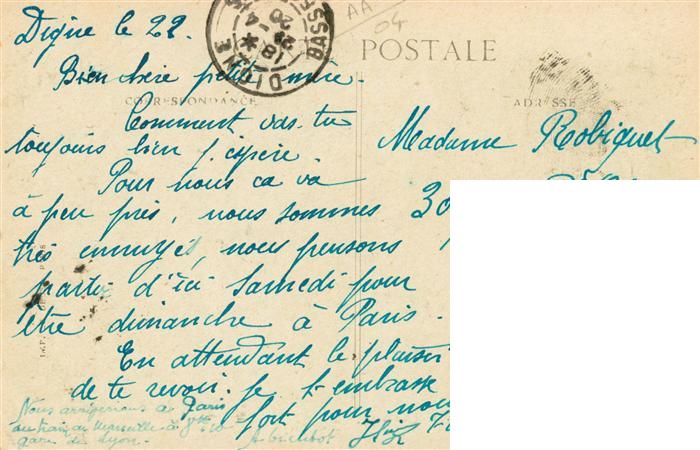 Digne le 22.
DIGNE
BASSES
POSTALE
AA
04
Bien chère petite mère.
CORRESPONDANCE
ADRESSE
Comment vas-tu
toujours bien j'espère.
Pour nous ça va
à peu près, nous sommes
très ennuyés, nous pensons
partir d'ici samedi pour
être dimanche à Paris.
En attendant le plaisir
de te revoir. Je t'embrasse
fort pour nous
Nous arriverons à Paris
au train de Marseille à
gare de Lyon.
A bientôt
Madame Robiquet
30